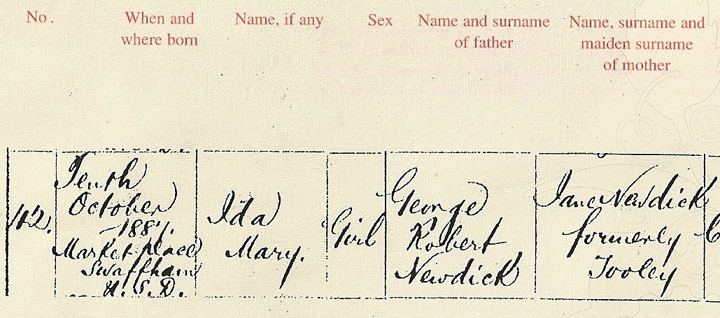 No.
When and
where born
Name, if any
Sex
Name and surname
of father
Name, surname and
maiden surname
of mother
42.
Tenth
October
1887.
Market place
Swaffham
U.S.D.
Ida
Mary.
Girl
George
Robert
Newdick
Jane Newdick
formerly
Tooley